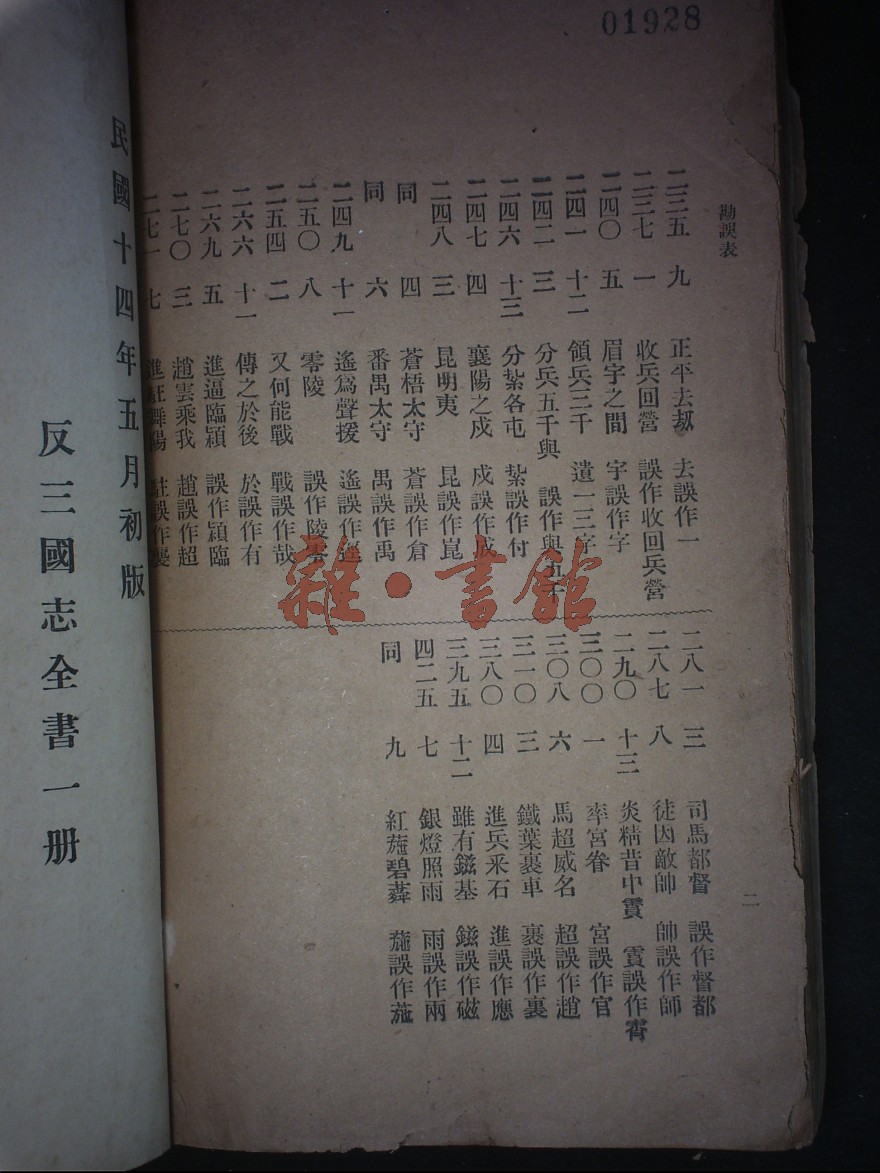 01928
勘誤表
二三五 九 正平去刼 去誤作一
二三七 一 收兵回營 誤作收回兵營
二四〇 五 眉宇之間 宇誤作字
二四一 十二 領兵三千 遺一三字
二四二 三 分兵五千與 誤作與五千
二四六 十三 分紮各屯 紮誤作付
二四七 四 襄陽之戍 戍誤作成
二四八 三 昆明夷 昆誤作崑
同 四 蒼梧太守 蒼誤作倉
同 六 番禺太守 禺誤作禹
二四九 十一 遙爲聲援 遙誤作逕
二五〇 八 零陵 誤作陵零
二五四 二 又何能戰 戰誤作哉
二六六 十一 傳之於後 於誤作有
二六九 五 進逼臨潁 誤作潁臨
二七〇 三 趙雲乘我 趙誤作超
二七一 七 進駐舞陽 駐誤作襲
二八一 三 司馬都督 誤作督都
二八七 八 徒因敵帥 帥誤作師
二九〇 十三 炎精昔中霣 霣誤作霄
三〇〇 一 率宮眷 宮誤作官
三〇八 六 馬超威名 超誤作趙
三一〇 三 鐵葉裹車 裹誤作裏
三八〇 四 進兵采石 進誤作應
三九五 十二 雖有鎡基 鎡誤作磁
四二五 七 銀燈照雨 雨誤作兩
同 九 紅葹碧蕣 葹誤作葹
二
民國十四年五月初版
反三國志全書一册
雜·書館